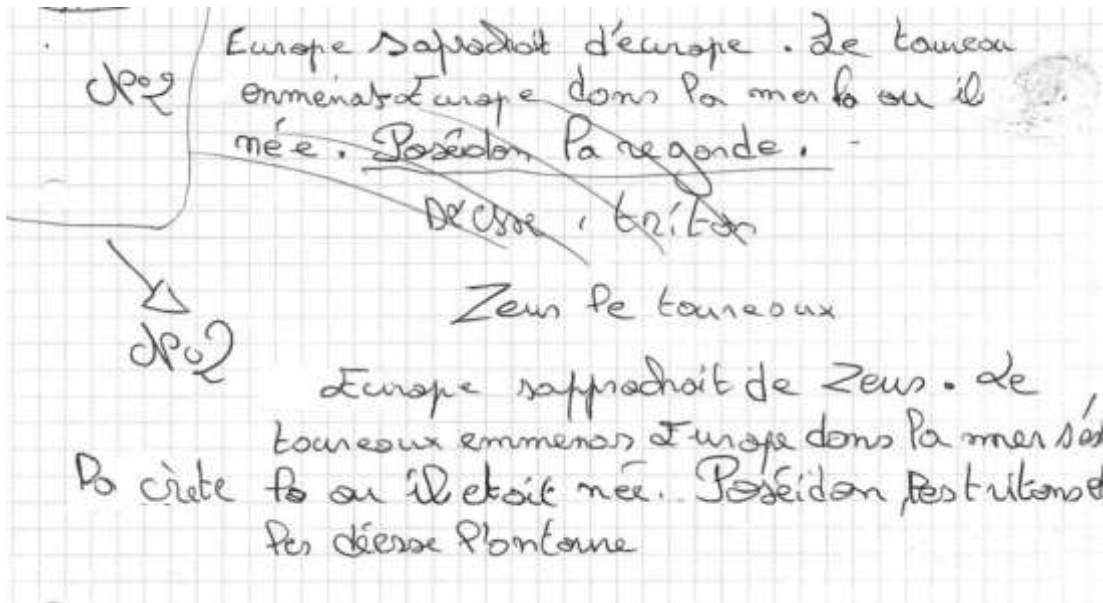 Europe saprochoit d'europe. Le taureau
N°2 enmenat Europe dans la mer la ou il
née. Poséidon la regarde.
Déesse, triton
Zeus le taureaux
N°2
Europe sapprochait de Zeus. Le
taureaux emmenas Europe dans la mer s'est
la crète la ou il etoit née. Poséidon, les tritons et
les déesse l'entoure